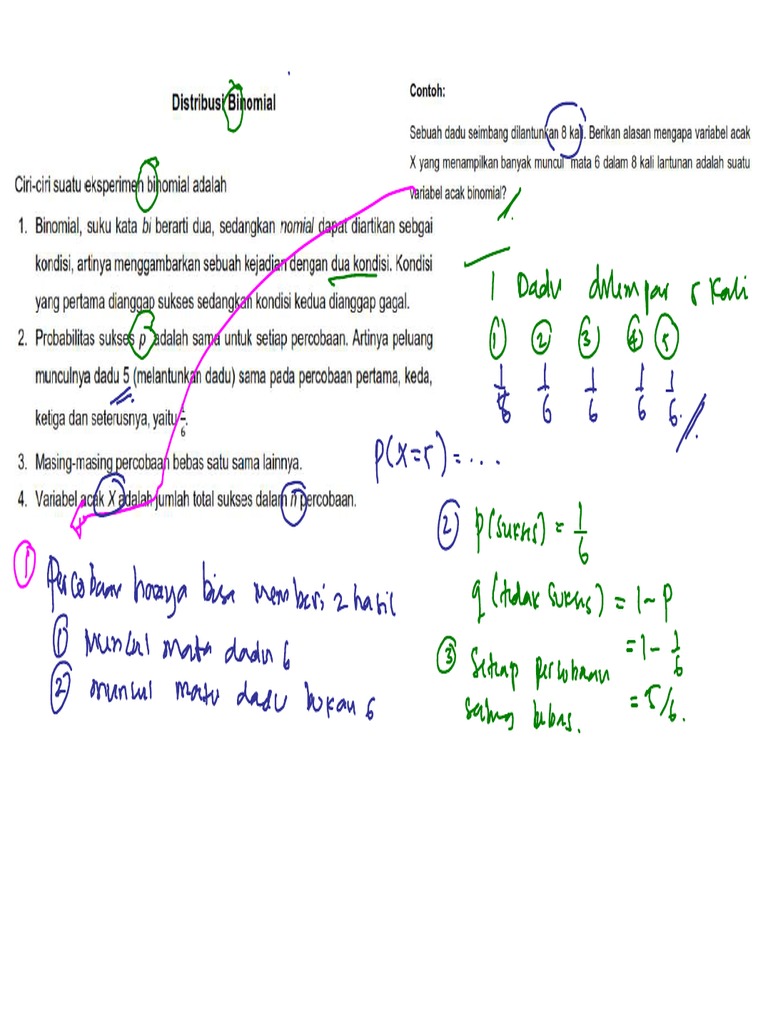 Distribusi Binomial
Ciri-ciri suatu eksperimen binomial adalah
1. Binomial, suku kata bi berarti dua, sedangkan nomial dapat diartikan sebgai
kondisi, artinya menggambarkan sebuah kejadian dengan dua kondisi. Kondisi
yang pertama dianggap sukses sedangkan kondisi kedua dianggap gagal.
2. Probabilitas sukses p adalah sama untuk setiap percobaan. Artinya peluang
munculnya dadu 5 (melantunkan dadu) sama pada percobaan pertama, keda,
ketiga dan seterusnya, yaitu 1/6.
3. Masing-masing percobaan bebas satu sama lainnya.
4. Variabel acak X adalah jumlah total sukses dalam n percobaan.
① Percobaan hanya bisa memberi 2 hasil
① Muncul mata dadu 6
② muncul mata dadu bukan 6
Contoh:
Sebuah dadu seimbang dilantunkan 8 kali. Berikan alasan mengapa variabel acak
X yang menampilkan banyak muncul mata 6 dalam 8 kali lartunan adalah suatu
variabel acak binomial?
1 Dadu dilempar 5 kali
① ② ③ ④ ⑤
1/6 1/6 1/6 1/6 1/6
P(X=5) = ...
② P(sukses) = 1/6
q (tidak sukses) = 1-p
= 1 - 1/6
= 5/6.
③ Setiap percobaan
saling bebas.